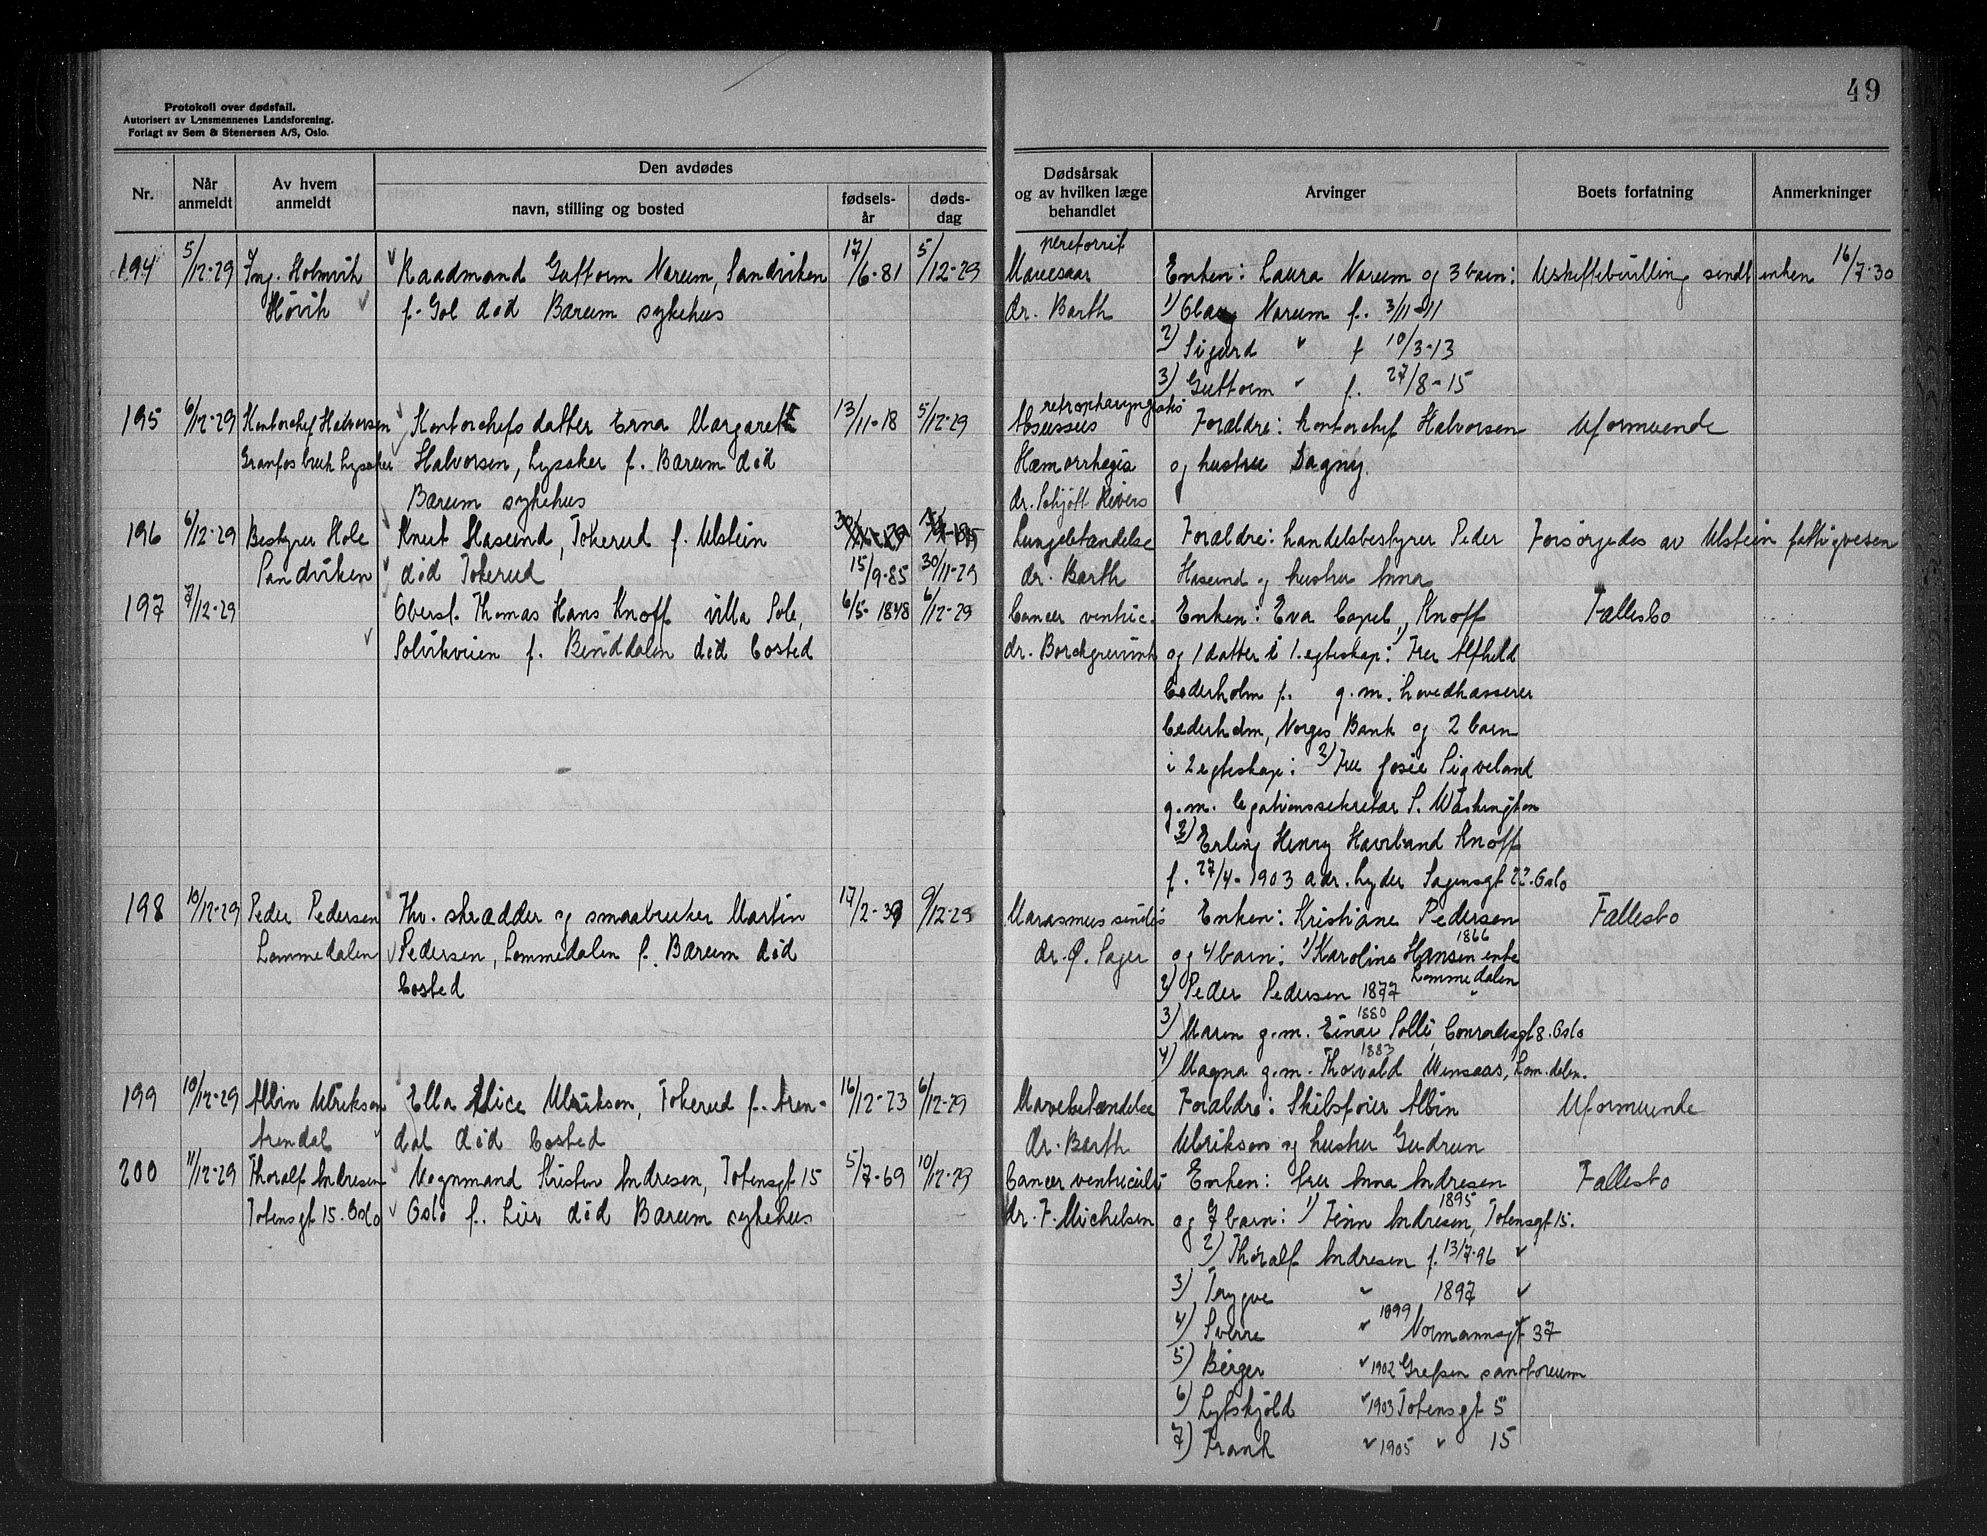 49
Protokoll over dødsfall.
Autorisert av Lensmennenes Landsforening.
Forlagt av Sem & Stenersen A/S, Oslo.
Nr.
Når anmeldt
Av hvem anmeldt
Den avdødes
navn, stilling og bosted
fødsels-år
døds-dag
Dødsårsak og av hvilken læge behandlet
Arvinger
Boets forfatning
Anmerkninger
194 5/12-29 Ing. Holmvik Raadmand Guttorm Narum, Sandviken 17/6-81 5/12-29
Høvik f. Gol død Bærum sykehus
Mavesaar
dr. Barth
Enken: Laura Narum og 3 barn: Uskiftebevilling sendt enken 16/7-30
1) Olav Narum f. 3/11-11
2) Sigurd " f 10/3-13
3) Guttorm " f. 27/8-15
195 6/12-29 Kontorchef Halvorsen Kontorchefs datter Erna Margarett 13/11-18 5/12-29
Granfos bruk Lysaker Halvorsen, Lysaker f. Bærum død
Bærum sykehus
Hæmorrhagia
dr. Schjøtt
Forældre: kontorchef Halvorsen Uformuende
og hustru Dagny.
196 6/12-29 Bestyrer Hole Knut Haseund, Tokerud f. Ulstein
Sandviken død Tokerud 15/9-85 30/11-29
Lungebetændelse
dr. Barth
Forældre: handelsbestyrer Peder Forsørgedes av Ulstein fattigvesen
Haseund og hustru Anna
197 7/12-29 Oberst. Thomas Hans Knoff villa Sole, 6/5-1848 6/12-29
Solvikveien f. Binddalen død bosted
Cancer ventric.
dr. Borchgrevink
Enken: Eva Capel, Knoff Fællesbo
og 1 datter i 1. egteskap: 1) Fru Alfhild
Cederholm f. g.m. hovedkasserer
Cederholm, Norges Bank og 2 barn
i 2 egteskap: 2) Fru Josie Sigveland
g.m. legationssekretær S. Washington
3) Erling Henry Haviland Knoff
f. 27/4-1903 adr. Lyder Sagensgt 22. Oslo
198 10/12-29 Peder Pedersen Fhv. skrædder og smaabruker Martin 17/2-39 9/12-29
Lommedalen Pedersen, Lommedalen f. Bærum død
bosted
Marasmus senilis
dr. Ø. Sager
Enken: Kristiane Pedersen Fællesbo
og 4 barn: 1) Karoline Hansen 1866 enke
Lommedalen
2) Peder Pedersen 1877 "
3) Maren 1880 g.m. Einar Solli, Conradisgt 8. Oslo
4) Magna g.m. Thorvald 1883 Wensaas, Lom.dalen.
199 10/12-29 Albin Ulrikson Ella Alice Ulrikson, Tokerud f. Aren- 16/12-23 6/12-29
Arendal dal død bosted
Mavebetændelse
dr. Barth
Forældre: Skibsfører Albin Uformuende
Ulrikson og hustru Gudrun
200 11/12-29 Thoralf Andresen Vognmand Kristen Andresen, Totensgt 15 5/7-69 10/12-29
Totensgt 15. Oslo Oslo f. Lier død Bærum sykehus
Cancer ventriculi
dr. F. Michelsen
Enken: fru Anna Andresen Fællesbo
og 7 barn: 1) Finn Andresen 1895, Totensgt 15.
2) Thoralf Andresen f. 13/7-96 "
3) Trygve " 1897 "
4) Sverre " 1899 Normannsgt 37
5) Birger " 1902 Grefsen sanatorium
6) Lytskjold " 1903 Totensgt 5
7) Frank " 1905 " 15